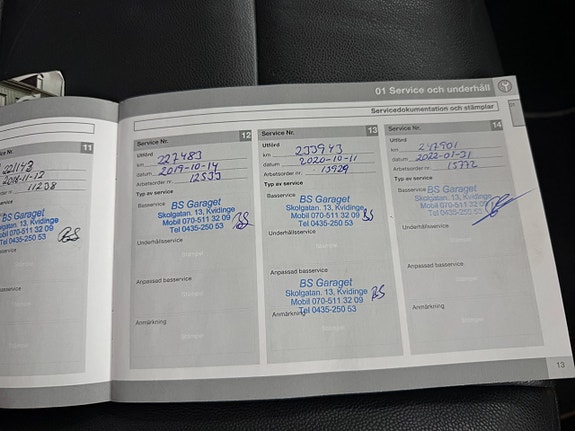 01 Service och underhåll
Servicedokumentation och stämplar
11
221143
2018-11-12
11238
BS Garaget
Skolgatan. 13, Kvidinge
Mobil 070-511 32 09
Tel 0435-250 53
BS
Stämpel
Service Nr. 12
Utförd
km 227483
datum 2019-10-14
Arbetsorder nr. 12533
Typ av service
Basservice
BS Garaget
Skolgatan. 13, Kvidinge
Mobil 070-511 32 09
Tel 0435-250 53
BS
Underhållsservice
Stämpel
Anpassad basservice
Stämpel
Anmärkning
Service Nr. 13
Utförd
km 233943
datum 2020-10-11
Arbetsorder nr. 13929
Typ av service
Basservice
BS Garaget
Skolgatan. 13, Kvidinge
Mobil 070-511 32 09
Tel 0435-250 53
BS
Underhållsservice
Anpassad basservice
BS Garaget
Skolgatan. 13, Kvidinge
Mobil 070-511 32 09
Tel 0435-250 53
BS
Anmärkning
Service Nr. 14
Utförd
km 247901
datum 2022-01-21
Arbetsorder nr. 15772
Typ av service
Basservice
BS Garaget
Skolgatan. 13, Kvidinge
Mobil 070-511 32 09
Tel 0435-250 53
Underhållsservice
Stämpel
Anpassad basservice
Stämpel
Anmärkning
13